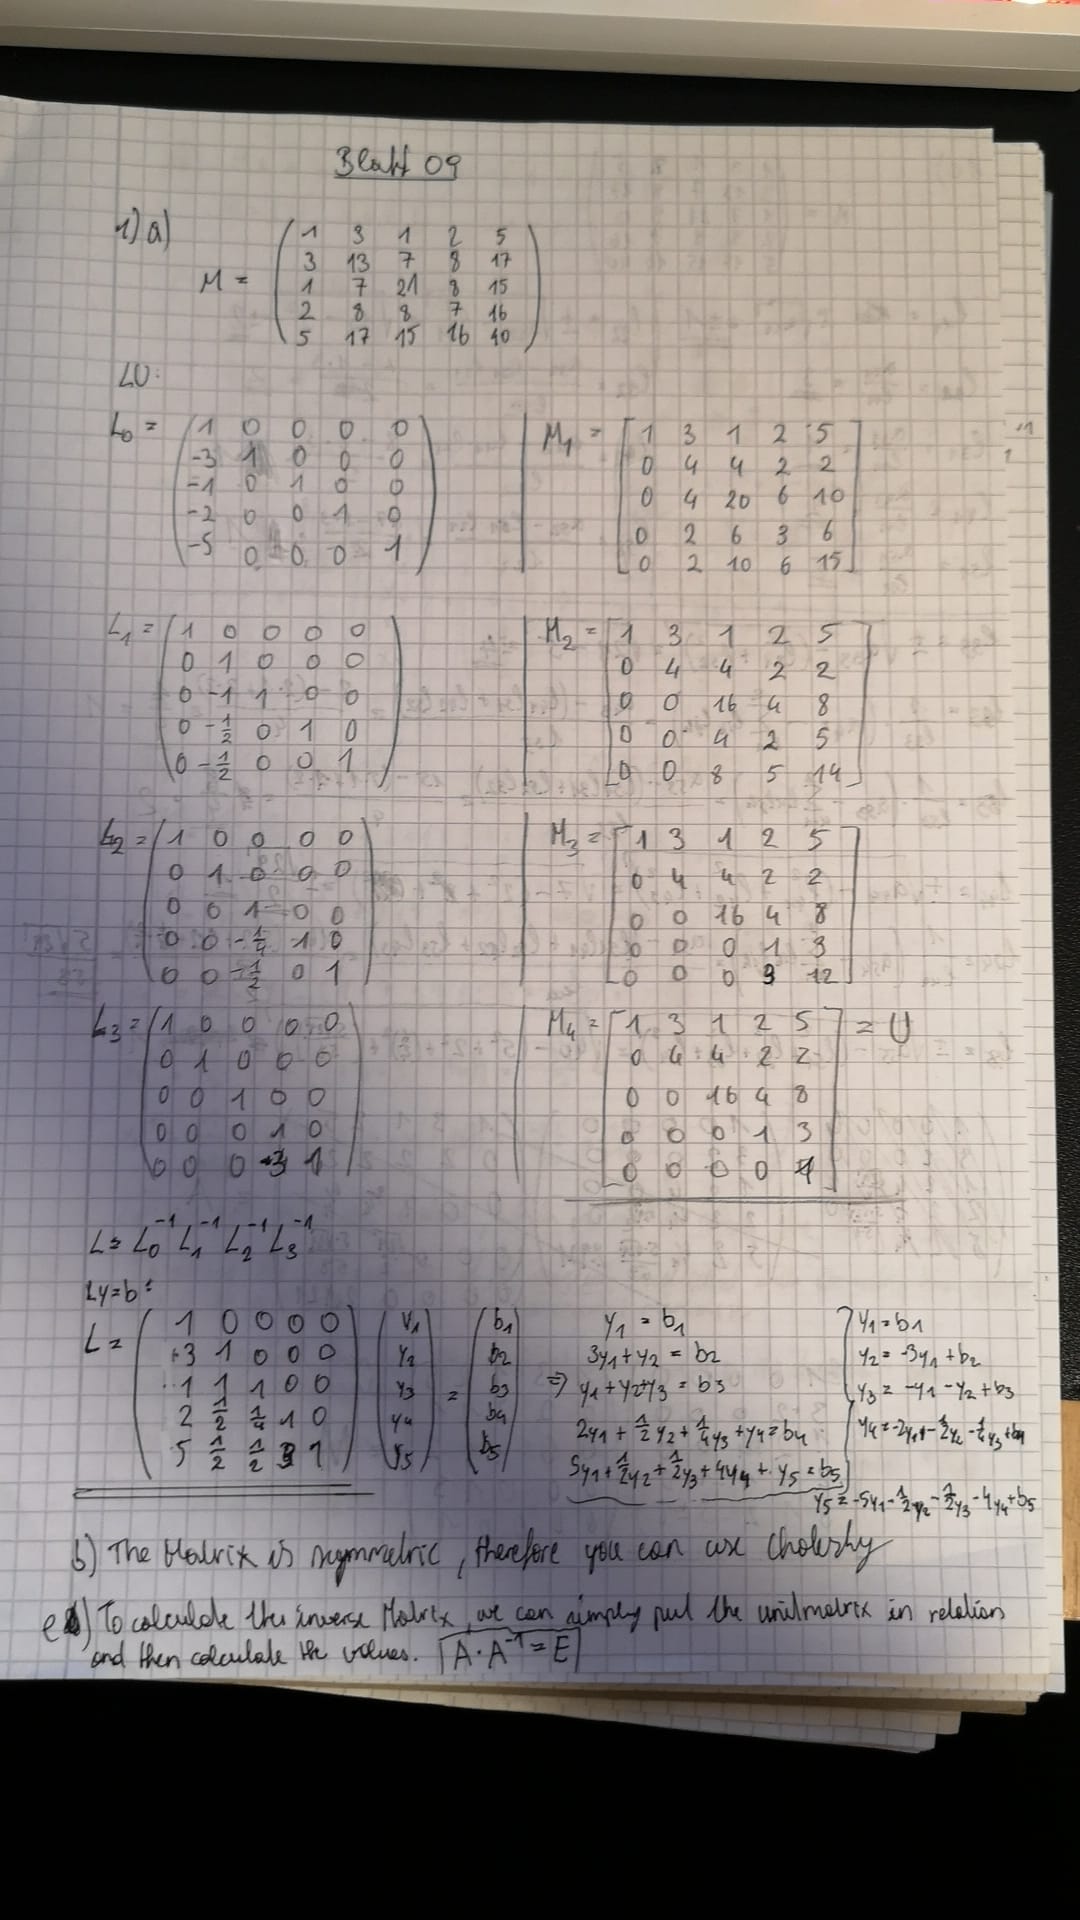 Blatt 09
1) a)
M = ( 1 3 1 2 5
3 13 7 8 17
1 7 21 8 15
2 8 8 7 16
5 17 15 16 40 )
LU:
L₀ = ( 1 0 0 0 0
-3 1 0 0 0
-1 0 1 0 0
-2 0 0 1 0
-5 0 0 0 1 )
M₁ = [ 1 3 1 2 5
0 4 4 2 2
0 4 20 6 10
0 2 6 3 6
0 2 10 6 15 ]
L₁ = ( 1 0 0 0 0
0 1 0 0 0
0 -1 1 0 0
0 -1/2 0 1 0
0 -1/2 0 0 1 )
M₂ = [ 1 3 1 2 5
0 4 4 2 2
0 0 16 4 8
0 0 4 2 5
0 0 8 5 14 ]
L₂ = ( 1 0 0 0 0
0 1 0 0 0
0 0 1 0 0
0 0 -1/4 1 0
0 0 -1/2 0 1 )
M₃ = [ 1 3 1 2 5
0 4 4 2 2
0 0 16 4 8
0 0 0 1 3
0 0 0 3 12 ]
L₃ = ( 1 0 0 0 0
0 1 0 0 0
0 0 1 0 0
0 0 0 1 0
0 0 0 -3 1 )
M₄ = [ 1 3 1 2 5 ] = U
0 4 4 2 2
0 0 16 4 8
0 0 0 1 3
0 0 0 0
L = L₀⁻¹ L₁⁻¹ L₂⁻¹ L₃⁻¹
Ly=b:
L = ( 1 0 0 0 0 ) ( y₁ ) = ( b₁ )
3 1 0 0 0 y₂ b₂
1 1 1 0 0 y₃ b₃
2 1/2 1/4 1 0 y₄ b₄
5 1/2 1/2 3 1 y₅ b₅
y₁ = b₁
3y₁+y₂ = b₂
⇒ y₁+y₂+y₃ = b₃
2y₁ + 1/2 y₂ + 1/4 y₃ + y₄ = b₄
5y₁ + 1/2 y₂ + 1/2 y₃ + 4y₄ + y₅ = b₅
y₁ = b₁
y₂ = -3y₁ + b₂
y₃ = -y₁ - y₂ + b₃
y₄ = -2y₁ - 1/2 y₂ - 1/4 y₃ + b₄
y₅ = -5y₁ - 1/2 y₂ - 1/2 y₃ - 4y₄ + b₅
b) The Matrix is symmetric, therefore you can use Cholesky
e) To calculate the inverse Matrix, we can simply put the unitmatrix in relation
and then calculate the values. A·A⁻¹ = E